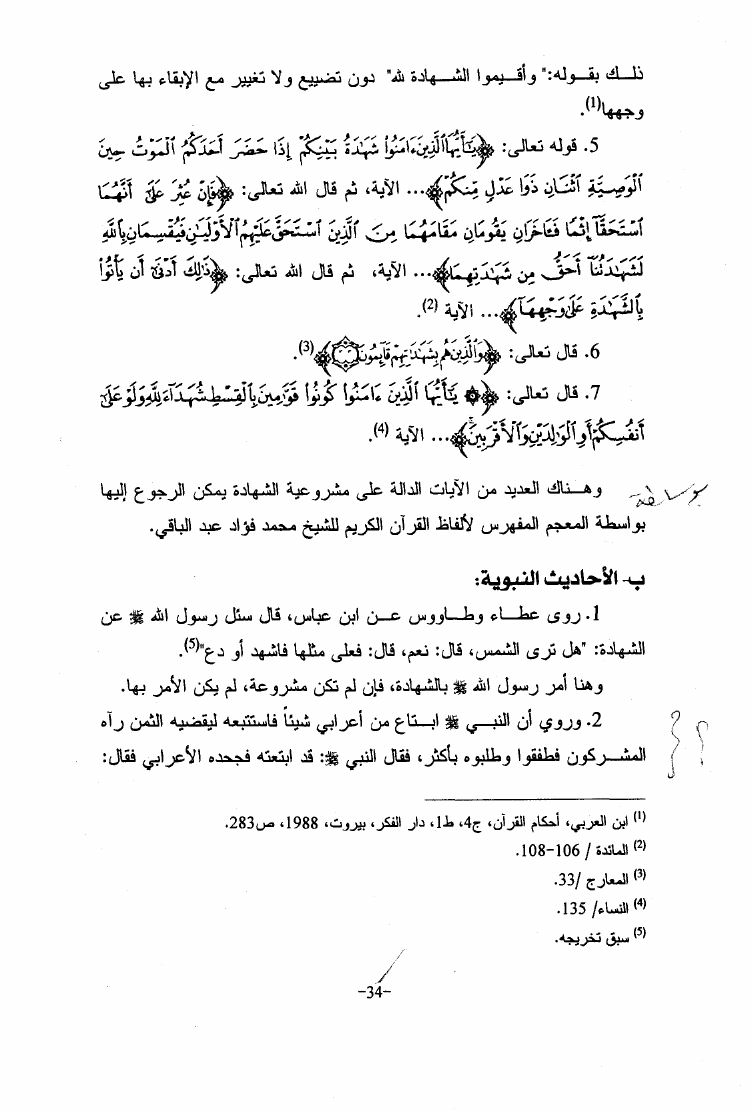 ذلك بقوله:" وأقيموا الشهادة لله" دون تضييع ولا تغيير مع الإبقاء بها على
وجهها(1).
5. قوله تعالى: ﴿يَٰٓأَيُّهَا الَّذِينَ ءَامَنُوا شَهَٰدَةُ بَيْنِكُمْ إِذَا حَضَرَ أَحَدَكُمُ الْمَوْتُ حِينَ
الْوَصِيَّةِ اثْنَانِ ذَوَا عَدْلٍ مِّنكُمْ﴾... الآية، ثم قال الله تعالى: ﴿فَإِنْ عُثِرَ عَلَىٰٓ أَنَّهُمَا
اسْتَحَقَّآ إِثْمًا فَـَٔاخَرَانِ يَقُومَانِ مَقَامَهُمَا مِنَ الَّذِينَ اسْتَحَقَّ عَلَيْهِمُ الْأَوْلَيَٰنِ فَيُقْسِمَانِ بِاللَّهِ
لَشَهَٰدَتُنَآ أَحَقُّ مِن شَهَٰدَتِهِمَا﴾... الآية، ثم قال الله تعالى: ﴿ذَٰلِكَ أَدْنَىٰٓ أَن يَأْتُوا
بِالشَّهَٰدَةِ عَلَىٰ وَجْهِهَآ﴾... الآية (2).
6. قال تعالى: ﴿وَالَّذِينَ هُم بِشَهَٰدَٰتِهِمْ قَآئِمُونَ﴾(3).
7. قال تعالى: ﴿۞ يَٰٓأَيُّهَا الَّذِينَ ءَامَنُوا كُونُوا قَوَّٰمِينَ بِالْقِسْطِ شُهَدَآءَ لِلَّهِ وَلَوْ عَلَىٰٓ
أَنفُسِكُمْ أَوِ الْوَٰلِدَيْنِ وَالْأَقْرَبِينَ﴾... الآية (4).
وهناك العديد من الآيات الدالة على مشروعية الشهادة يمكن الرجوع إليها
بوساطة
بواسطة المعجم المفهرس لألفاظ القرآن الكريم للشيخ محمد فؤاد عبد الباقي.
ب- الأحاديث النبوية:
1. روى عطاء وطاووس عن ابن عباس، قال سئل رسول الله ﷺ عن
الشهادة: "هل ترى الشمس، قال: نعم، قال: فعلى مثلها فاشهد أو دع"(5).
وهنا أمر رسول الله ﷺ بالشهادة، فإن لم تكن مشروعة، لم يكن الأمر بها.
2. وروي أن النبي ﷺ ابتاع من أعرابي شيئاً فاستتبعه ليقضيه الثمن رآه
؟
المشركون فطفقوا وطلبوه بأكثر، فقال النبي ﷺ: قد ابتعته فجحده الأعرابي فقال:
(1) ابن العربي، أحكام القرآن، ج4، ط1، دار الفكر، بيروت، 1988، ص283.
(2) المائدة / 106-108.
(3) المعارج /33.
(4) النساء/ 135.
(5) سبق تخريجه.
-34-